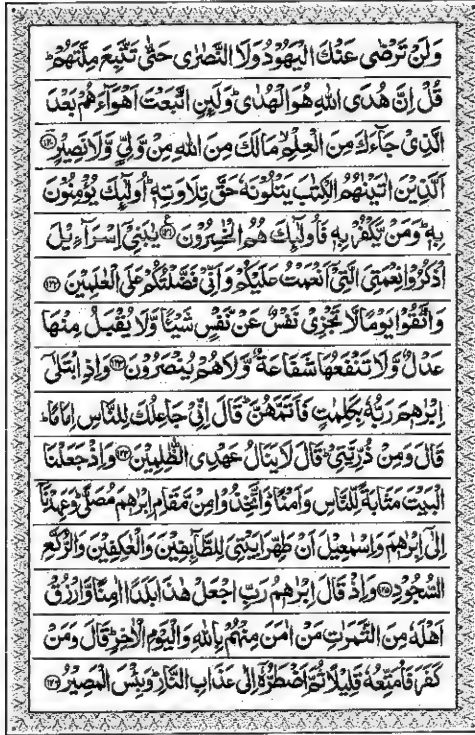 وَلَنْ تَرْضٰى عَنْكَ الْيَهُوْدُ وَلَا النَّصٰرٰى حَتّٰى تَتَّبِعَ مِلَّتَهُمْ ؕ
قُلْ اِنَّ هُدَى اللّٰهِ هُوَ الْهُدٰى ؕ وَلَئِنِ اتَّبَعْتَ اَهْوَآءَهُمْ بَعْدَ
الَّذِيْ جَآءَكَ مِنَ الْعِلْمِ ۙ مَا لَكَ مِنَ اللّٰهِ مِنْ وَّلِيٍّ وَّلَا نَصِيْرٍ ؔ ﴿۱۲۰﴾
اَلَّذِيْنَ اٰتَيْنٰهُمُ الْكِتٰبَ يَتْلُوْنَهٗ حَقَّ تِلَاوَتِهٖ ؕ اُولٰٓئِكَ يُؤْمِنُوْنَ
بِهٖ ؕ وَمَنْ يَّكْفُرْ بِهٖ فَاُولٰٓئِكَ هُمُ الْخٰسِرُوْنَ ﴿۱۲۱﴾ ع يٰبَنِيْٓ اِسْرَآءِيْلَ
اذْكُرُوْا نِعْمَتِيَ الَّتِيْٓ اَنْعَمْتُ عَلَيْكُمْ وَاَنِّيْ فَضَّلْتُكُمْ عَلَى الْعٰلَمِيْنَ ﴿۱۲۲﴾
وَاتَّقُوْا يَوْمًا لَّا تَجْزِيْ نَفْسٌ عَنْ نَّفْسٍ شَيْـًٔا وَّلَا يُقْبَلُ مِنْهَا
عَدْلٌ وَّلَا تَنْفَعُهَا شَفَاعَةٌ وَّلَا هُمْ يُنْصَرُوْنَ ﴿۱۲۳﴾ وَاِذِ ابْتَلٰٓى
اِبْرٰهٖمَ رَبُّهٗ بِكَلِمٰتٍ فَاَتَمَّهُنَّ ؕ قَالَ اِنِّيْ جَاعِلُكَ لِلنَّاسِ اِمَامًا ؕ
قَالَ وَمِنْ ذُرِّيَّتِيْ ؕ قَالَ لَا يَنَالُ عَهْدِى الظّٰلِمِيْنَ ﴿۱۲۴﴾ وَاِذْ جَعَلْنَا
الْبَيْتَ مَثَابَةً لِّلنَّاسِ وَاَمْنًا ؕ وَاتَّخِذُوْا مِنْ مَّقَامِ اِبْرٰهٖمَ مُصَلًّى ؕ وَعَهِدْنَآ
اِلٰٓى اِبْرٰهٖمَ وَاِسْمٰعِيْلَ اَنْ طَهِّرَا بَيْتِيَ لِلطَّآئِفِيْنَ وَالْعٰكِفِيْنَ وَالرُّكَّعِ
السُّجُوْدِ ﴿۱۲۵﴾ وَاِذْ قَالَ اِبْرٰهٖمُ رَبِّ اجْعَلْ هٰذَا بَلَدًا اٰمِنًا وَّارْزُقْ
اَهْلَهٗ مِنَ الثَّمَرٰتِ مَنْ اٰمَنَ مِنْهُمْ بِاللّٰهِ وَالْيَوْمِ الْاٰخِرِ ؕ قَالَ وَمَنْ
كَفَرَ فَاُمَتِّعُهٗ قَلِيْلًا ثُمَّ اَضْطَرُّهٗٓ اِلٰى عَذَابِ النَّارِ ؕ وَبِئْسَ الْمَصِيْرُ ﴿۱۲۶﴾